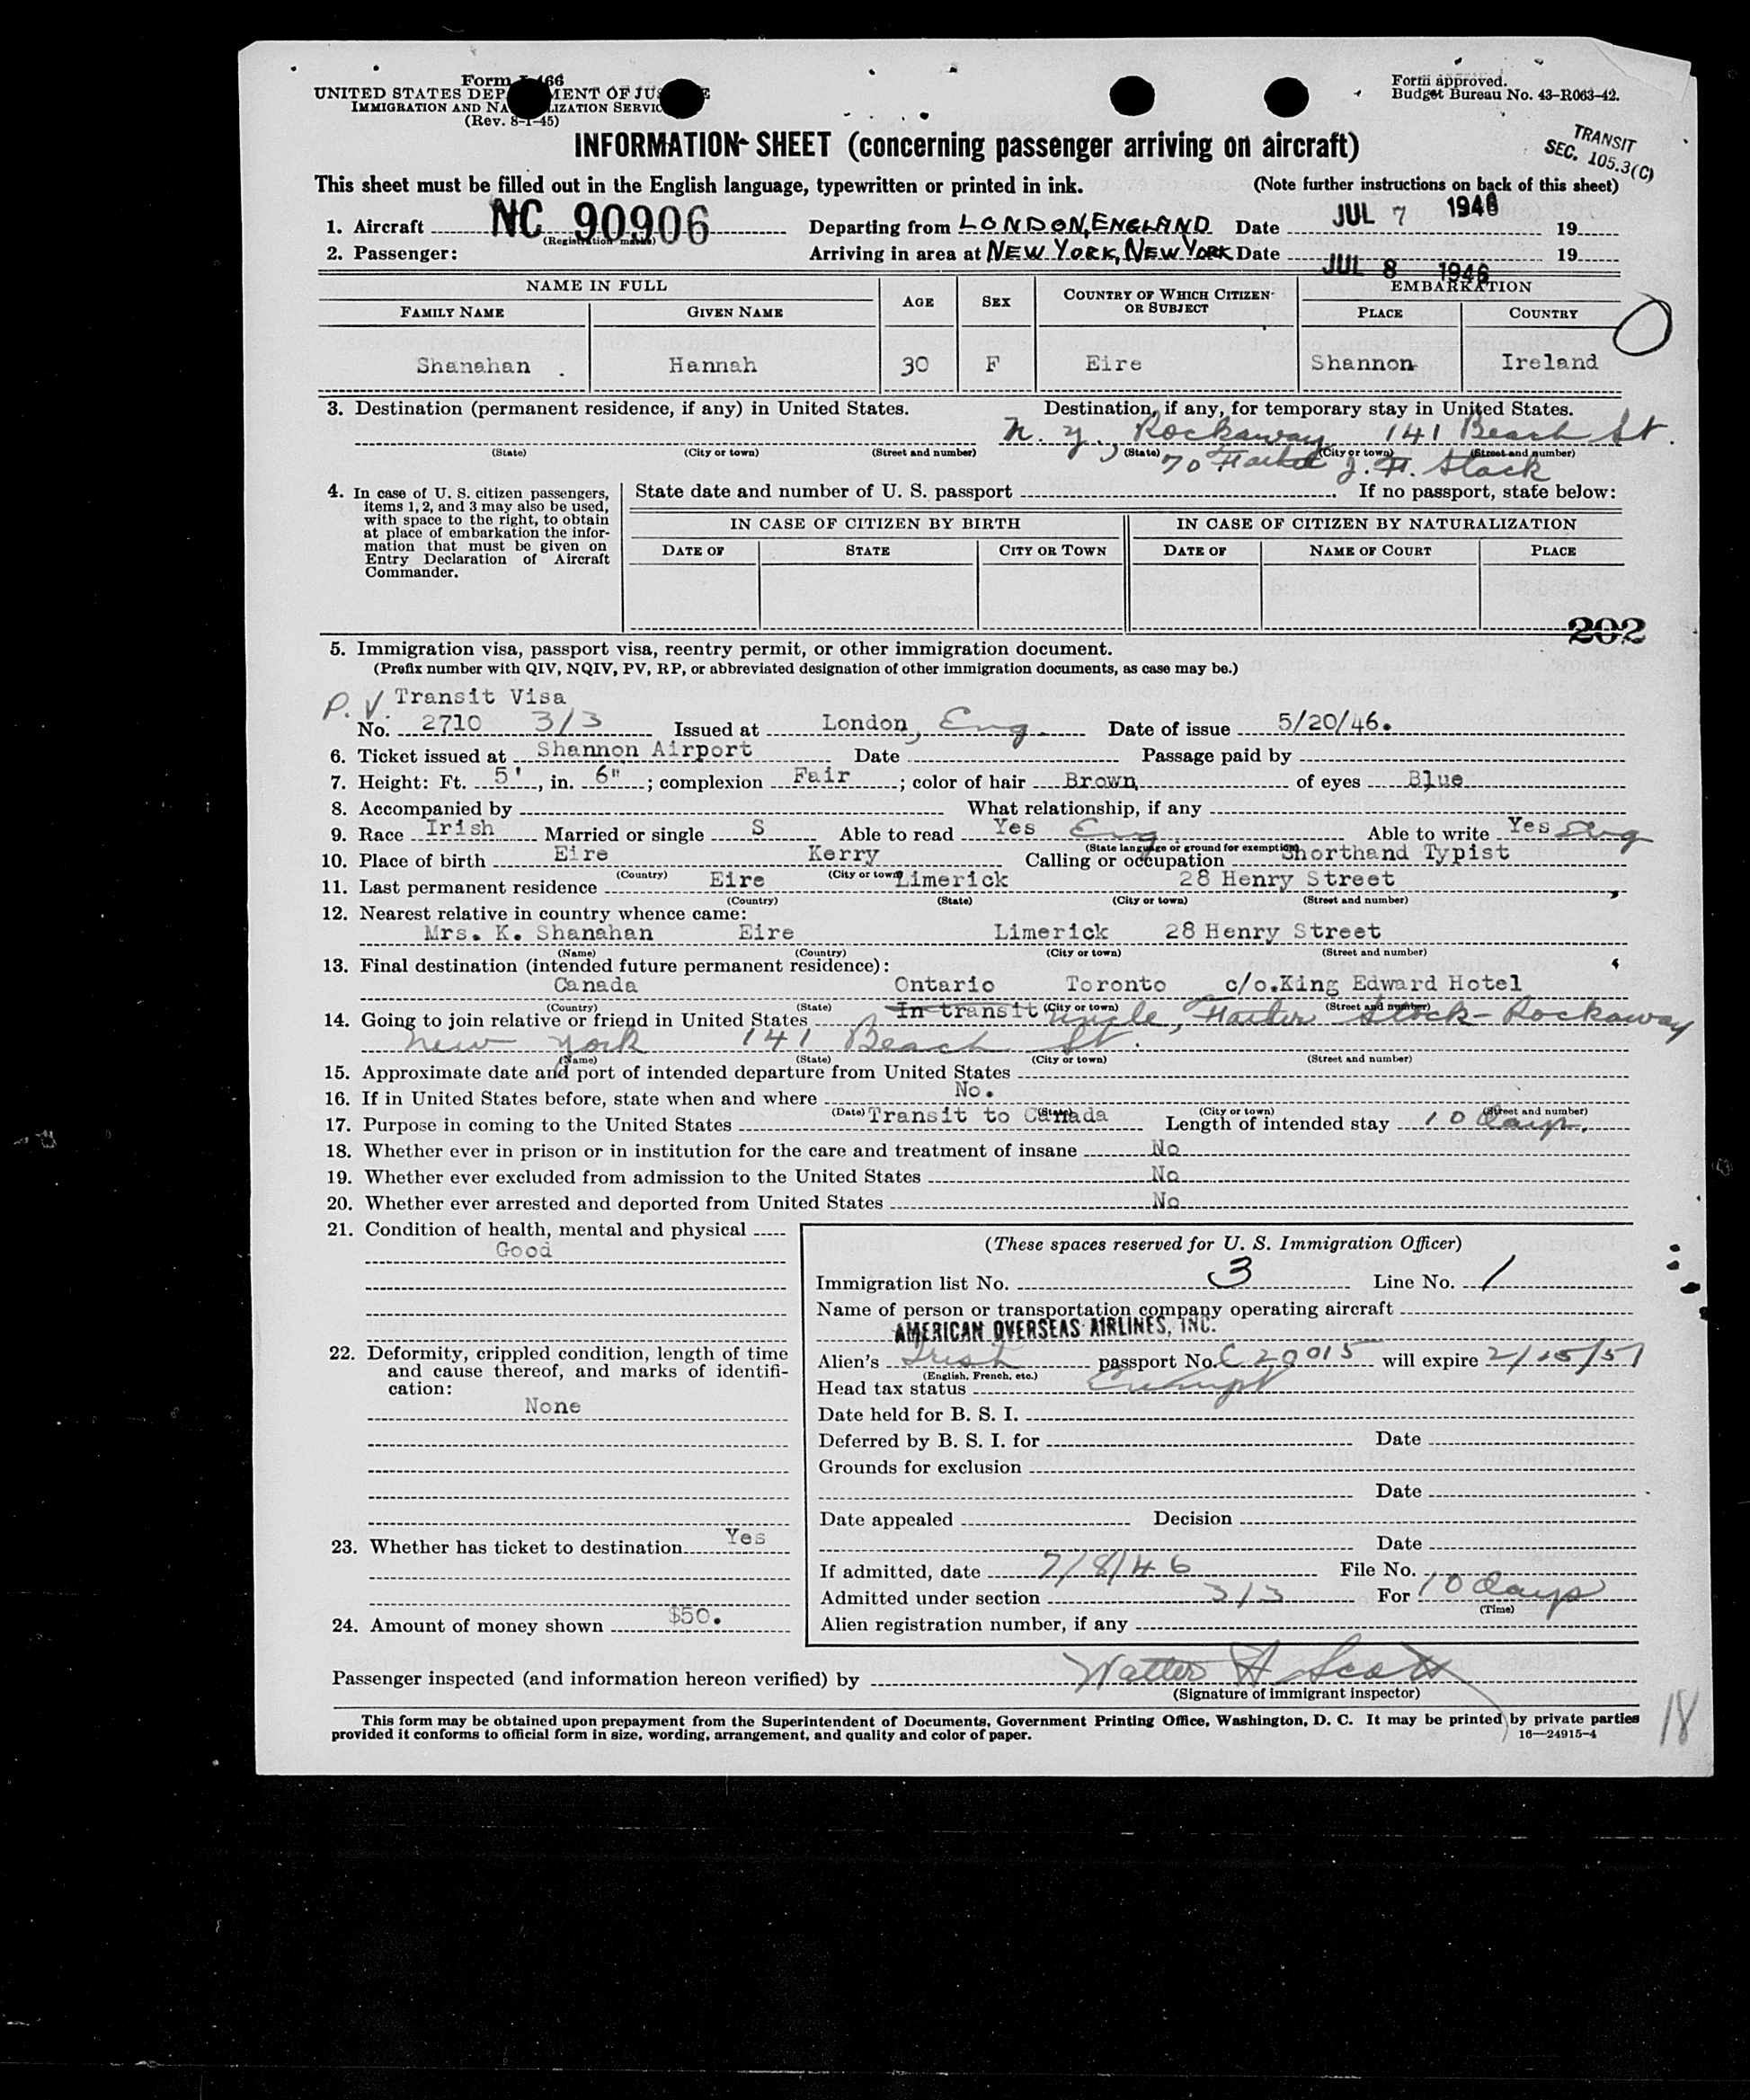 Form I-466
UNITED STATES DEPARTMENT OF JUSTICE
IMMIGRATION AND NATURALIZATION SERVICE
(Rev. 8-1-45)
Form approved.
Budget Bureau No. 43-R063-42.
INFORMATION SHEET (concerning passenger arriving on aircraft)
TRANSIT
SEC. 105.3(C)
This sheet must be filled out in the English language, typewritten or printed in ink. (Note further instructions on back of this sheet)
1. Aircraft NC 90906 Departing from LONDON, ENGLAND Date JUL 7 1946 19
(Registration marks)
2. Passenger: Arriving in area at NEW YORK, NEW YORK Date JUL 8 1946 19
NAME IN FULL AGE SEX COUNTRY OF WHICH CITIZEN OR SUBJECT EMBARKATION
FAMILY NAME GIVEN NAME PLACE COUNTRY
Shanahan Hannah 30 F Eire Shannon Ireland
3. Destination (permanent residence, if any) in United States. Destination, if any, for temporary stay in United States.
N. Y., Rockaway 141 Beach St.
(State) (City or town) (Street and number) (State) (City or town) (Street and number)
J. H. Stack
4. In case of U. S. citizen passengers, items 1, 2, and 3 may also be used, with space to the right, to obtain at place of embarkation the information that must be given on Entry Declaration of Aircraft Commander.
State date and number of U. S. passport . If no passport, state below:
IN CASE OF CITIZEN BY BIRTH IN CASE OF CITIZEN BY NATURALIZATION
DATE OF STATE CITY OR TOWN DATE OF NAME OF COURT PLACE
202
5. Immigration visa, passport visa, reentry permit, or other immigration document.
(Prefix number with QIV, NQIV, PV, RP, or abbreviated designation of other immigration documents, as case may be.)
P. V. Transit Visa
No. 2710 3/3 Issued at London, Eng. Date of issue 5/20/46.
6. Ticket issued at Shannon Airport Date Passage paid by
7. Height: Ft. 5', in. 6"; complexion Fair; color of hair Brown of eyes Blue
8. Accompanied by What relationship, if any
9. Race Irish Married or single S Able to read Yes Eng Able to write Yes Eng
(State language or ground for exemption)
10. Place of birth Eire Kerry Calling or occupation Shorthand Typist
(Country) (City or town)
11. Last permanent residence Eire Limerick 28 Henry Street
(Country) (State) (City or town) (Street and number)
12. Nearest relative in country whence came:
Mrs. K. Shanahan Eire Limerick 28 Henry Street
(Name) (Country) (City or town) (Street and number)
13. Final destination (intended future permanent residence):
Canada Ontario Toronto c/o.King Edward Hotel
(Country) (State) (City or town) (Street and number)
14. Going to join relative or friend in United States In transit Uncle, Father Stack - Rockaway
New York 141 Beach St.
(Name) (State) (City or town) (Street and number)
15. Approximate date and port of intended departure from United States
16. If in United States before, state when and where No.
(Date) (State) (City or town) (Street and number)
17. Purpose in coming to the United States Transit to Canada Length of intended stay 10 days.
18. Whether ever in prison or in institution for the care and treatment of insane No
19. Whether ever excluded from admission to the United States No
20. Whether ever arrested and deported from United States No
21. Condition of health, mental and physical
Good
22. Deformity, crippled condition, length of time and cause thereof, and marks of identification:
None
23. Whether has ticket to destination Yes
24. Amount of money shown $50.
(These spaces reserved for U. S. Immigration Officer)
Immigration list No. 3 Line No. 1
Name of person or transportation company operating aircraft
AMERICAN OVERSEAS AIRLINES, INC.
Alien's Irish passport No. C 20015 will expire 2/15/51
(English, French, etc.)
Head tax status Exempt
Date held for B. S. I.
Deferred by B. S. I. for Date
Grounds for exclusion
Date
Date appealed Decision
Date
If admitted, date 7/8/46 File No.
Admitted under section 3/3 For 10 days
(Time)
Alien registration number, if any
Passenger inspected (and information hereon verified) by Walter H Scott
(Signature of immigrant inspector)
This form may be obtained upon prepayment from the Superintendent of Documents, Government Printing Office, Washington, D. C. It may be printed by private parties
provided it conforms to official form in size, wording, arrangement, and quality and color of paper. 16—24915-4
18